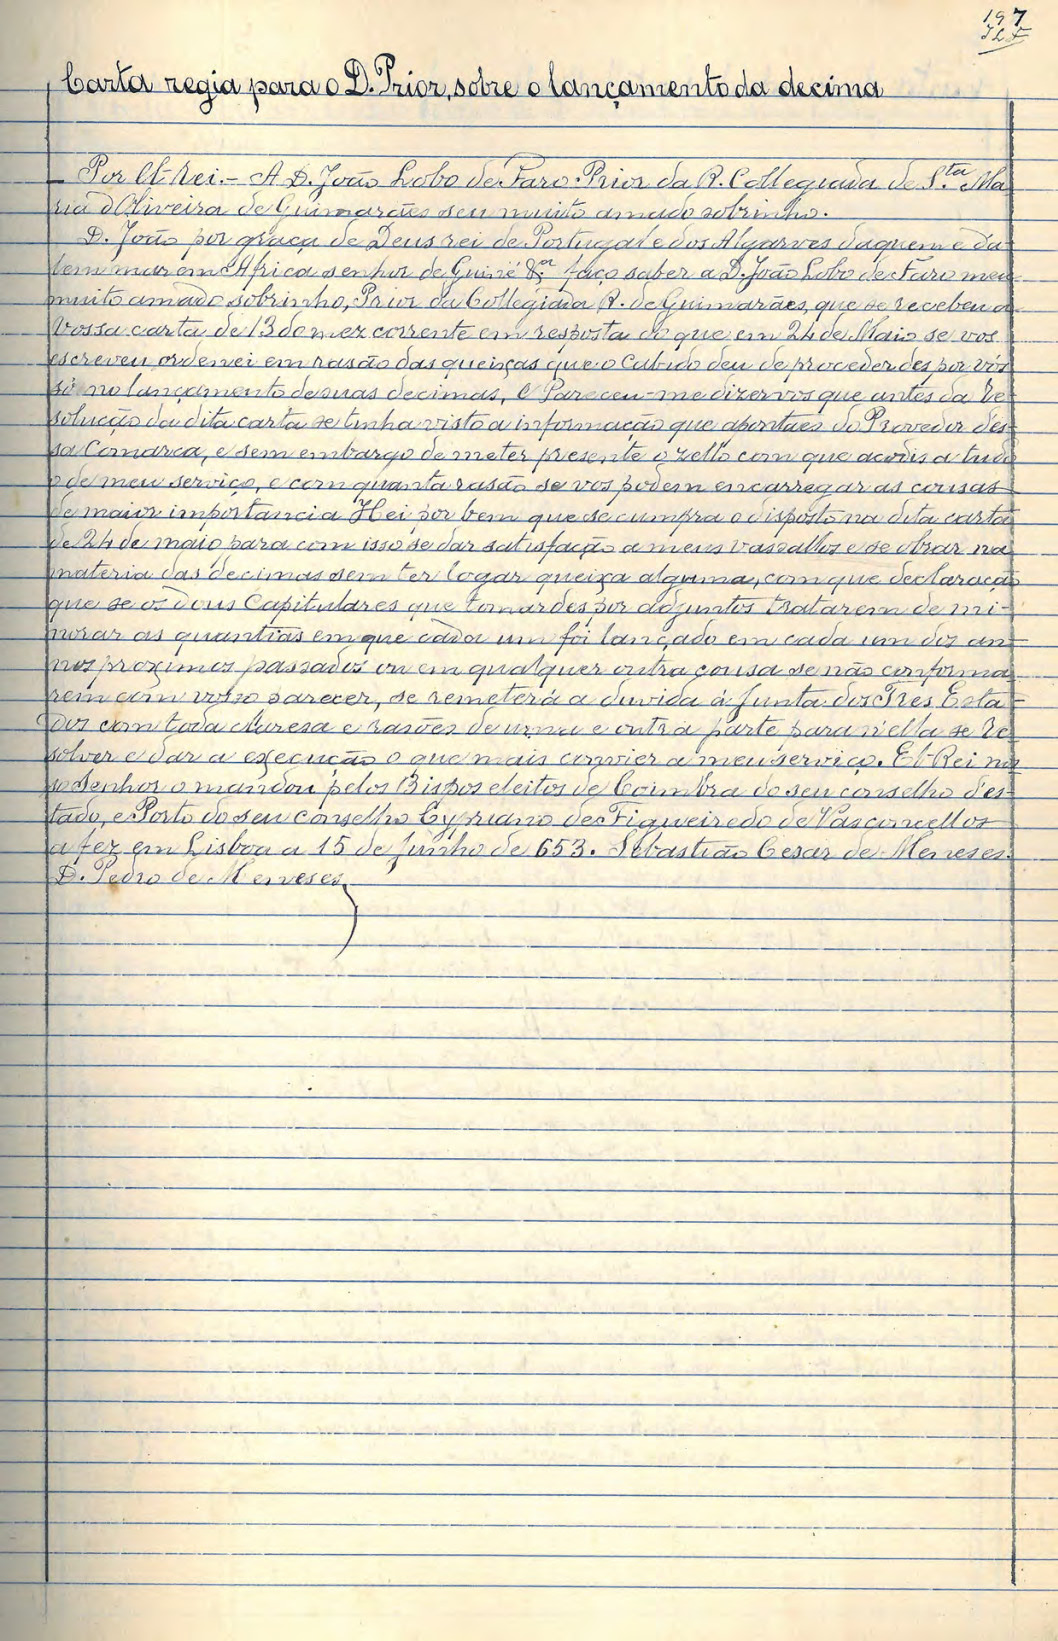 197
Carta regia para o D. Prior, sobre o lançamento da decima
Por El-Rei. - A D. João Lobo de Faro Prior da R. Collegiada de S.ta Ma
ria d'Oliveira de Guimarães seu muito amado sobrinho.
D. João por graça de Deus rei de Portugal e dos Algarves daquem e da
lem mar em Africa senhor de Guiné &.a faço saber a D. João Lobo de Faro meu
muito amado sobrinho, Prior da Collegiada R. de Guimarães, que se recebeu a
vossa carta de 13 do mez corrente em resposta do que em 24 de Maio se vos
escreveu, ordenei em rasão das queixas que o Cabido deu de procederdes por vós
só no lançamento de suas decimas, e Pareceu-me dizervos que antes da Re
solução da dita carta se tinha visto a informação que apontaes do Provedor des-
sa Comarca, e sem embargo de meter presente o zello com que acodis a tudo
o de meu serviço, e com quanta rasão se vos podem encarregar as cousas
de maior importancia Hei por bem que se cumpra o disposto na dita carta
de 24 de maio para com isso se dar satisfação a meus vassallos e se obrar na
materia das decimas sem ter logar queixa alguma, com que declaração
que se os dous Capitulares que tomardes por adjuntos tratarem de mi-
norar as quantias em que cada um foi lançado em cada um dos an-
nos proximos passados ou em qualquer outra cousa se não conforma
rem com vosso parecer, se remeterá a duvida á Junta dos Tres Esta-
dos com toda claresa e rasões de uma e outra parte para n'ella se re
solver e dar a execução o que mais convier a meu serviço. El-Rei nos
so Senhor o mandou pelos Bispos eleitos de Coimbra do seu conselho d'es-
tado, e Porto do seu conselho Cypriano de Figueiredo de Vasconcellos
a fez em Lisboa a 15 de Junho de 653. Sebastião Cesar de Meneses.
D. Pedro de Meneses